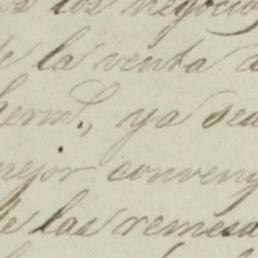 los negocio
de la venta d
herm.s, ya sea
mejor conveng
de las remesa